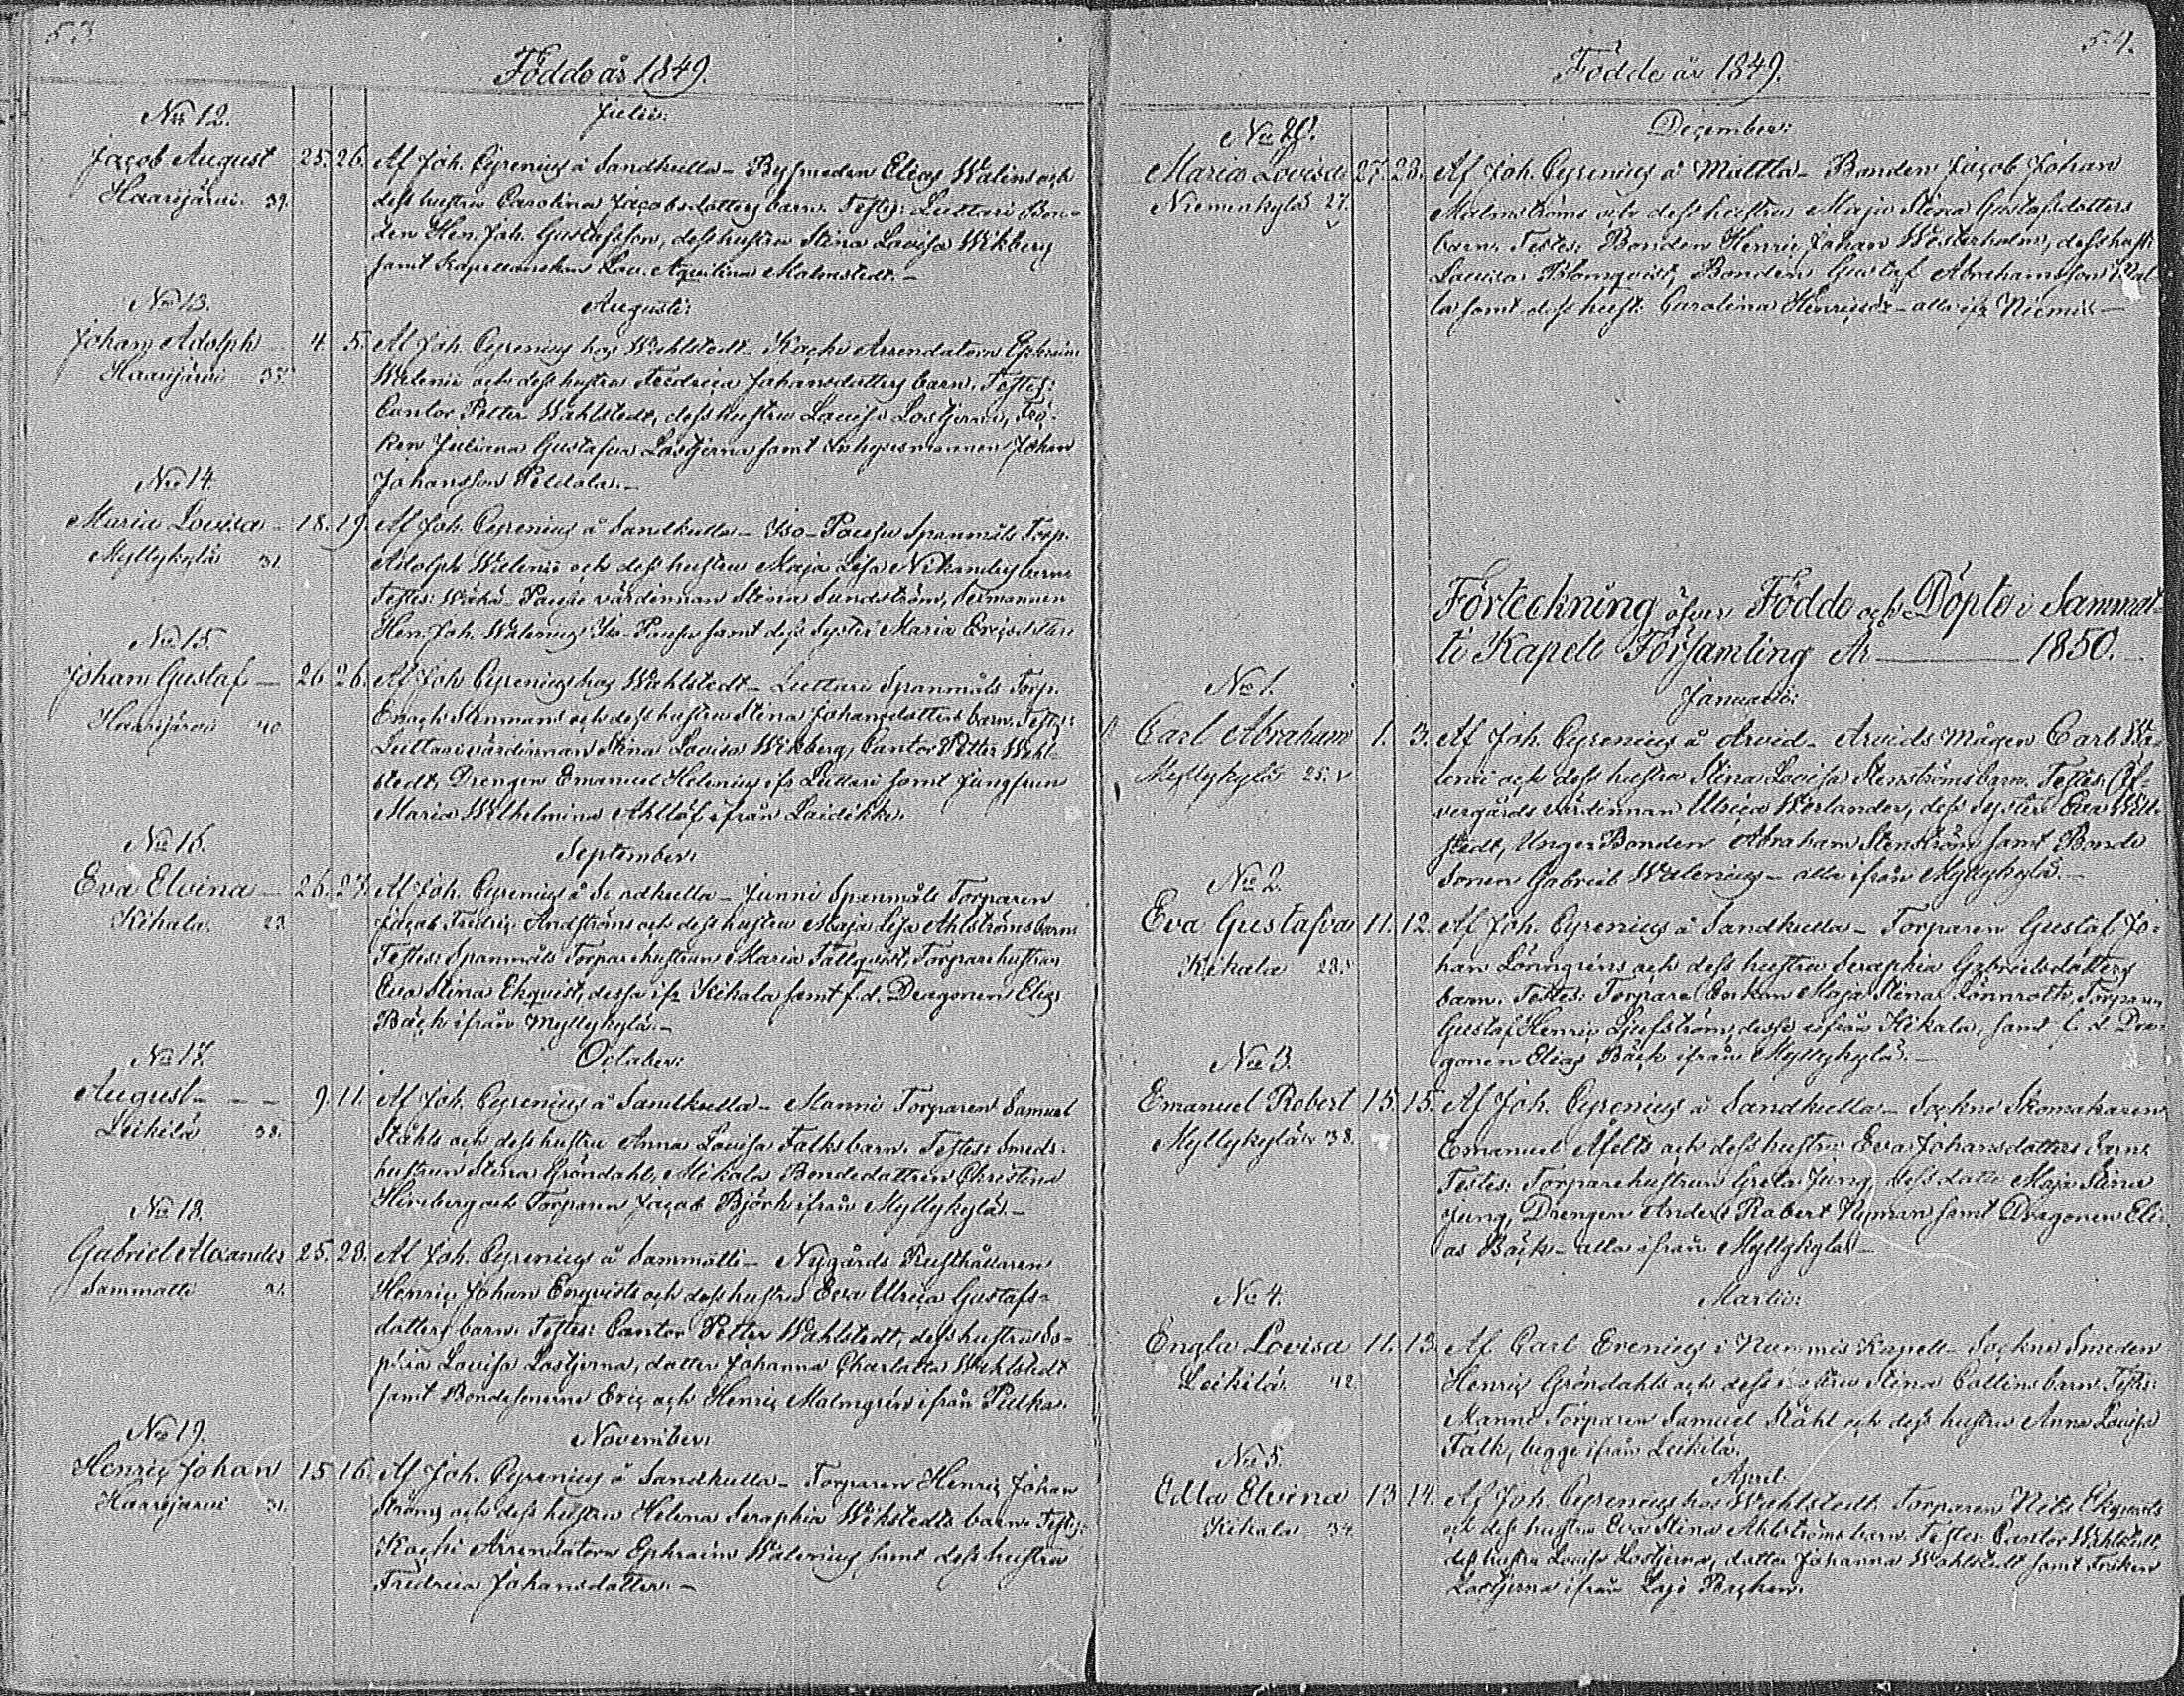 53.
Födde år 1849.
Julii:
No 12.
Jacob August 25. 26. Af Joh. Cyrenius å Sandkulla - Bysmeden Elias Walins och
Haarijärvi. 39. dess hustru Carolina Jacobsdotters barn. Testes: Luttari Bon-
den Hen. Joh. Gustafsson, dess hustru Stina Lovisa Wikberg
samt Kapellanskan Lov. Aquilina Malmstedt. -
No 13.
Augusti:
Johan Adolph 4. 5. Af Joh. Cyrenius hos Wahlstedt - Kocki Arrendatorn Ephraim
Haarijärvi 35. Walenii och dess hustru Fredrica Johansdotters barn. Testes:
Cantor Petter Wahlstedt, dess hustru Lovisa Lostjerna, Frö-
ken Juliana Gustafva Lostjerna samt Inhysesmannen Johan
Johansson Peldola. -
No 14.
Maria Lovisa - 18. 19. Af Joh. Cyrenius å Sandkulla - Iso-Paussu Spanmåls Torp.
Myllykylä 31. Adolph Walenii och dess hustru Maja Lisa Nikanders barn
Testes: Wähä-Paussu värdinnan Stina Sundström,
Hen. Joh. Walenius Iso-Paussu samt dess syster Maria Ericsdotter.
No 15.
Johan Gustaf - 26 26. Af Joh. Cyrenius hos Wahlstedt - Luttari Spanmåls Torp.
Haarijärvi 40. Enoch Stenmans och dess hustru Stina Johansdotters barn. Testes:
Luttari värdinnan Stina Lovisa Wikberg, Cantor Petter Wahl-
stedt, Drengen Emanuel Helenius ifr Luttari samt Jungfrun
Maria Wilhelmina Ahllöf ifrån Laidikke.
No 16.
September:
Eva Elvina - 26. 27. Af Joh. Cyrenius å Sandkulla - Junni Spanmåls Torparen
Kikala. 23. Jacob Fredric Andströms och dess hustru Maja Lisa Ahlströms barn
Testes: Spanmåls Torparehustrun Maria Tallqvist, Torparehustrun
Eva Stina Ekqvist, dessa ifr Kikala samt f.d. Dragonen Elias
Bäck ifrån Myllykylä. -
No 17.
October:
August - - - 9. 11. Af Joh. Cyrenius å Sandkulla - Manni Torparen Samuel
Leikilä 38. Ståhls och dess hustru Anna Lovisa Falks barn. Testes: Smeds-
hustrun Stina Gröndahl, Mikola Bondedottren Christina
Hirnberg och Torparen Jacob Björk ifrån Myllykylä. -
No 18.
Gabriel Alexander 25. 28. Af Joh. Cyrenius å Sammatti - Nygårds Rusthållaren
Sammatti Henric Johan Enqvists och dess hustru Eva Ulrica Gustafs-
dotters barn. Testes: Cantor Petter Wahlstedt, dess hustru So-
phia Lovisa Lostjerna, dotter Johanna Charlotta Wahlstedt
samt Bondesönerne Eric och Henric Malmgrén ifrån Pulka.
No 19.
November:
Henric Johan 15 16. Af Joh. Cyrenius å Sandkulla - Torparen Henric Johan
Haarijärvi 31. Ströms och dess hustru Helena Seraphia Wikstedts barn. Testes:
Kocki Arrendatorn Ephraim Walenius samt dess hustru
Fredrica Johansdotter. -
54.
Födde år 1849.
No 20.
December:
Maria Lovisa 27. 28. Af Joh. Cyrenius å Mattla - Bonden Jacob Johan
Niemenkylä 27. Malmströms och dess hustru Maja Stina Gustafsdotters
barn. Testes: Bonden Henric Johan Westerholm, dess hustr.
Lovisa Blomqvist, Bonden Gustaf Abrahamsson
samt dess hust. Carolina Henricsdr - alla ifr Niemis -
Förteckning öfver Födde och Döpte i Sammat-
ti Kapell Församling År - 1850. -
Januarii:
No 1.
Carl Abraham 1. 3. Af Joh. Cyrenius å Arvid - Arvids mågen Carl Wa-
Myllykylä 25. v lenii och dess hustru Stina Lovisa Stenströms barn. Testes: Öf-
vergårds värdinnan Ulrica Werlander, dess syster Eva Will-
stedt, Unger Bonden Abraham Stenström samt Bonde
Sonen Gabriel Walenius - alla ifrån Myllykylä. -
No 2.
Eva Gustafva 11. 12. Af Joh. Cyrenius å Sandkulla - Torparen Gustaf Jo-
Kikala 28. han Lönngréns och dess hustru Seraphia Gabrielsdotters
barn. Testes: Torpare Enkan Maja Stina Lönnroth, Torparen
Gustaf Henric Ljufström, dessa ifrån Kikala, samt f.d. Dra-
gonen Elias Bäck ifrån Myllykylä. -
No 3.
Emanuel Robert 15. 15. Af Joh. Cyrenius å Sandkulla - Sockne Skomakaren
Myllykylä 38. Emanuel Åfelts och dess hustru Eva Johansdotters barn.
Testes: Torparehustrun Greta Jung, dess dotter Maja Stina
Jung, Drengen Anders Robert Nyman samt Dragonen Eli-
as Bäck - alla ifrån Myllykylä -
No 4.
Martii:
Engla Lovisa 11. 13. Af Carl Evenius i Nummis Kapell - Sockne Smeden
Leikilä 42 Henric Gröndahls och dess hustru Stina Collins barn. Testes:
Manni Torparen Samuel Ståhl och dess hustru Anna Lovisa
Falk, begge ifrån Leikilä.
No 5.
April.
Edla Elvina 13 14. Af Joh. Cyrenius hos Wahlstedt. Torparen Nils Ekqvists
Kikala 34. och dess hustru Eva Stina Ahlströms barn. Testes: Cantor Wahlstedt,
dess hustru Lovisa Lostjerna, dotter Johanna Wahlstedt samt Fröken
Lostjerna ifrån